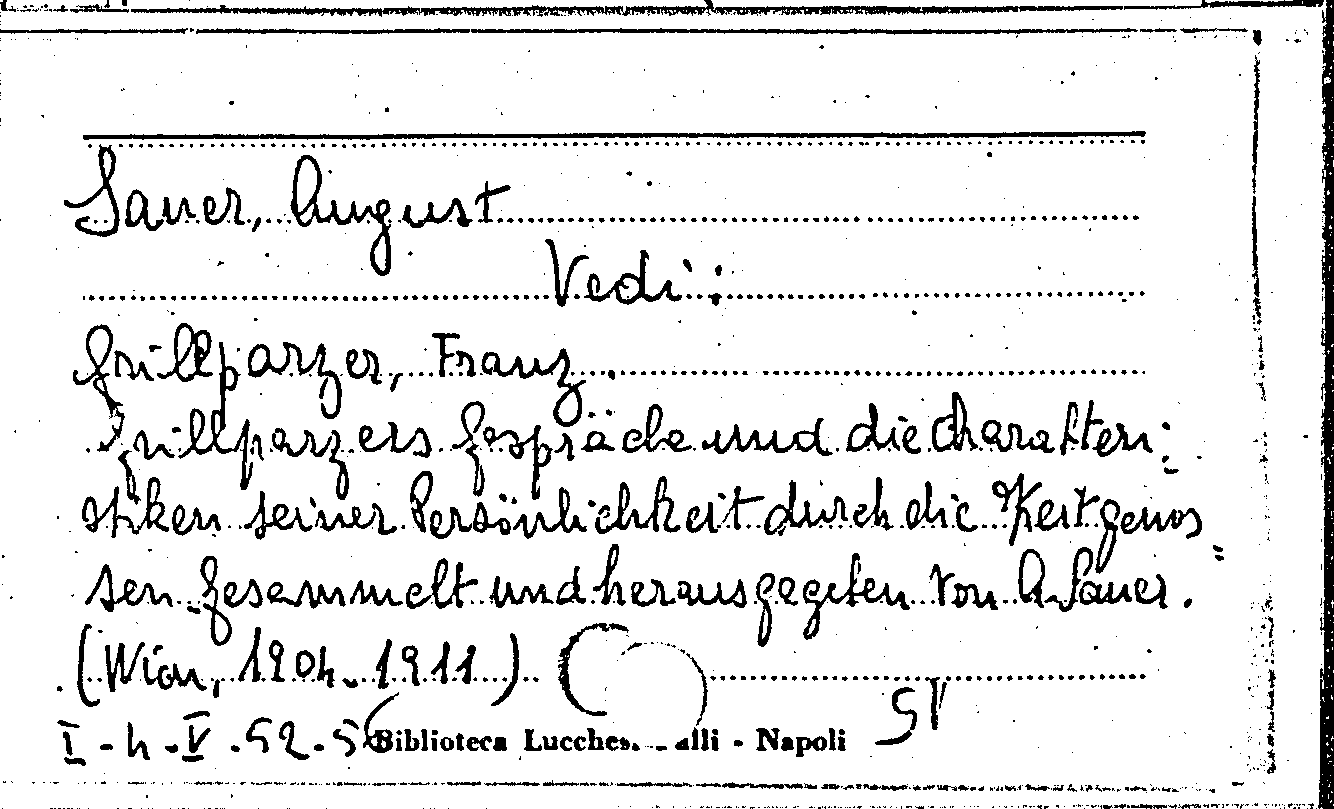 Sauer, August
Vedi:
Grillparzer, Franz.
Grillparzers Gespräche und die Charakteri=
stiken seiner Persönlichkeit durch die Zeitgenos=
sen. Gesammelt und herausgegeben von A. Sauer.
(Wien, 1904-1911)
I-4-V-52-56
Biblioteca Lucches. - alli - Napoli